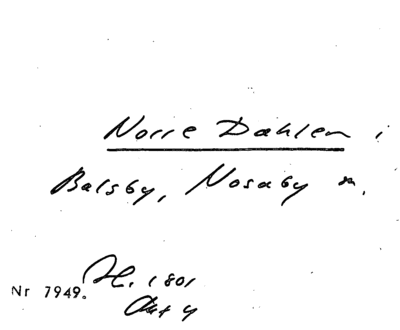 Norre Dahlen i
Balsby, Nosaby sn.
H. 1801
Nr 7949. Akt 4